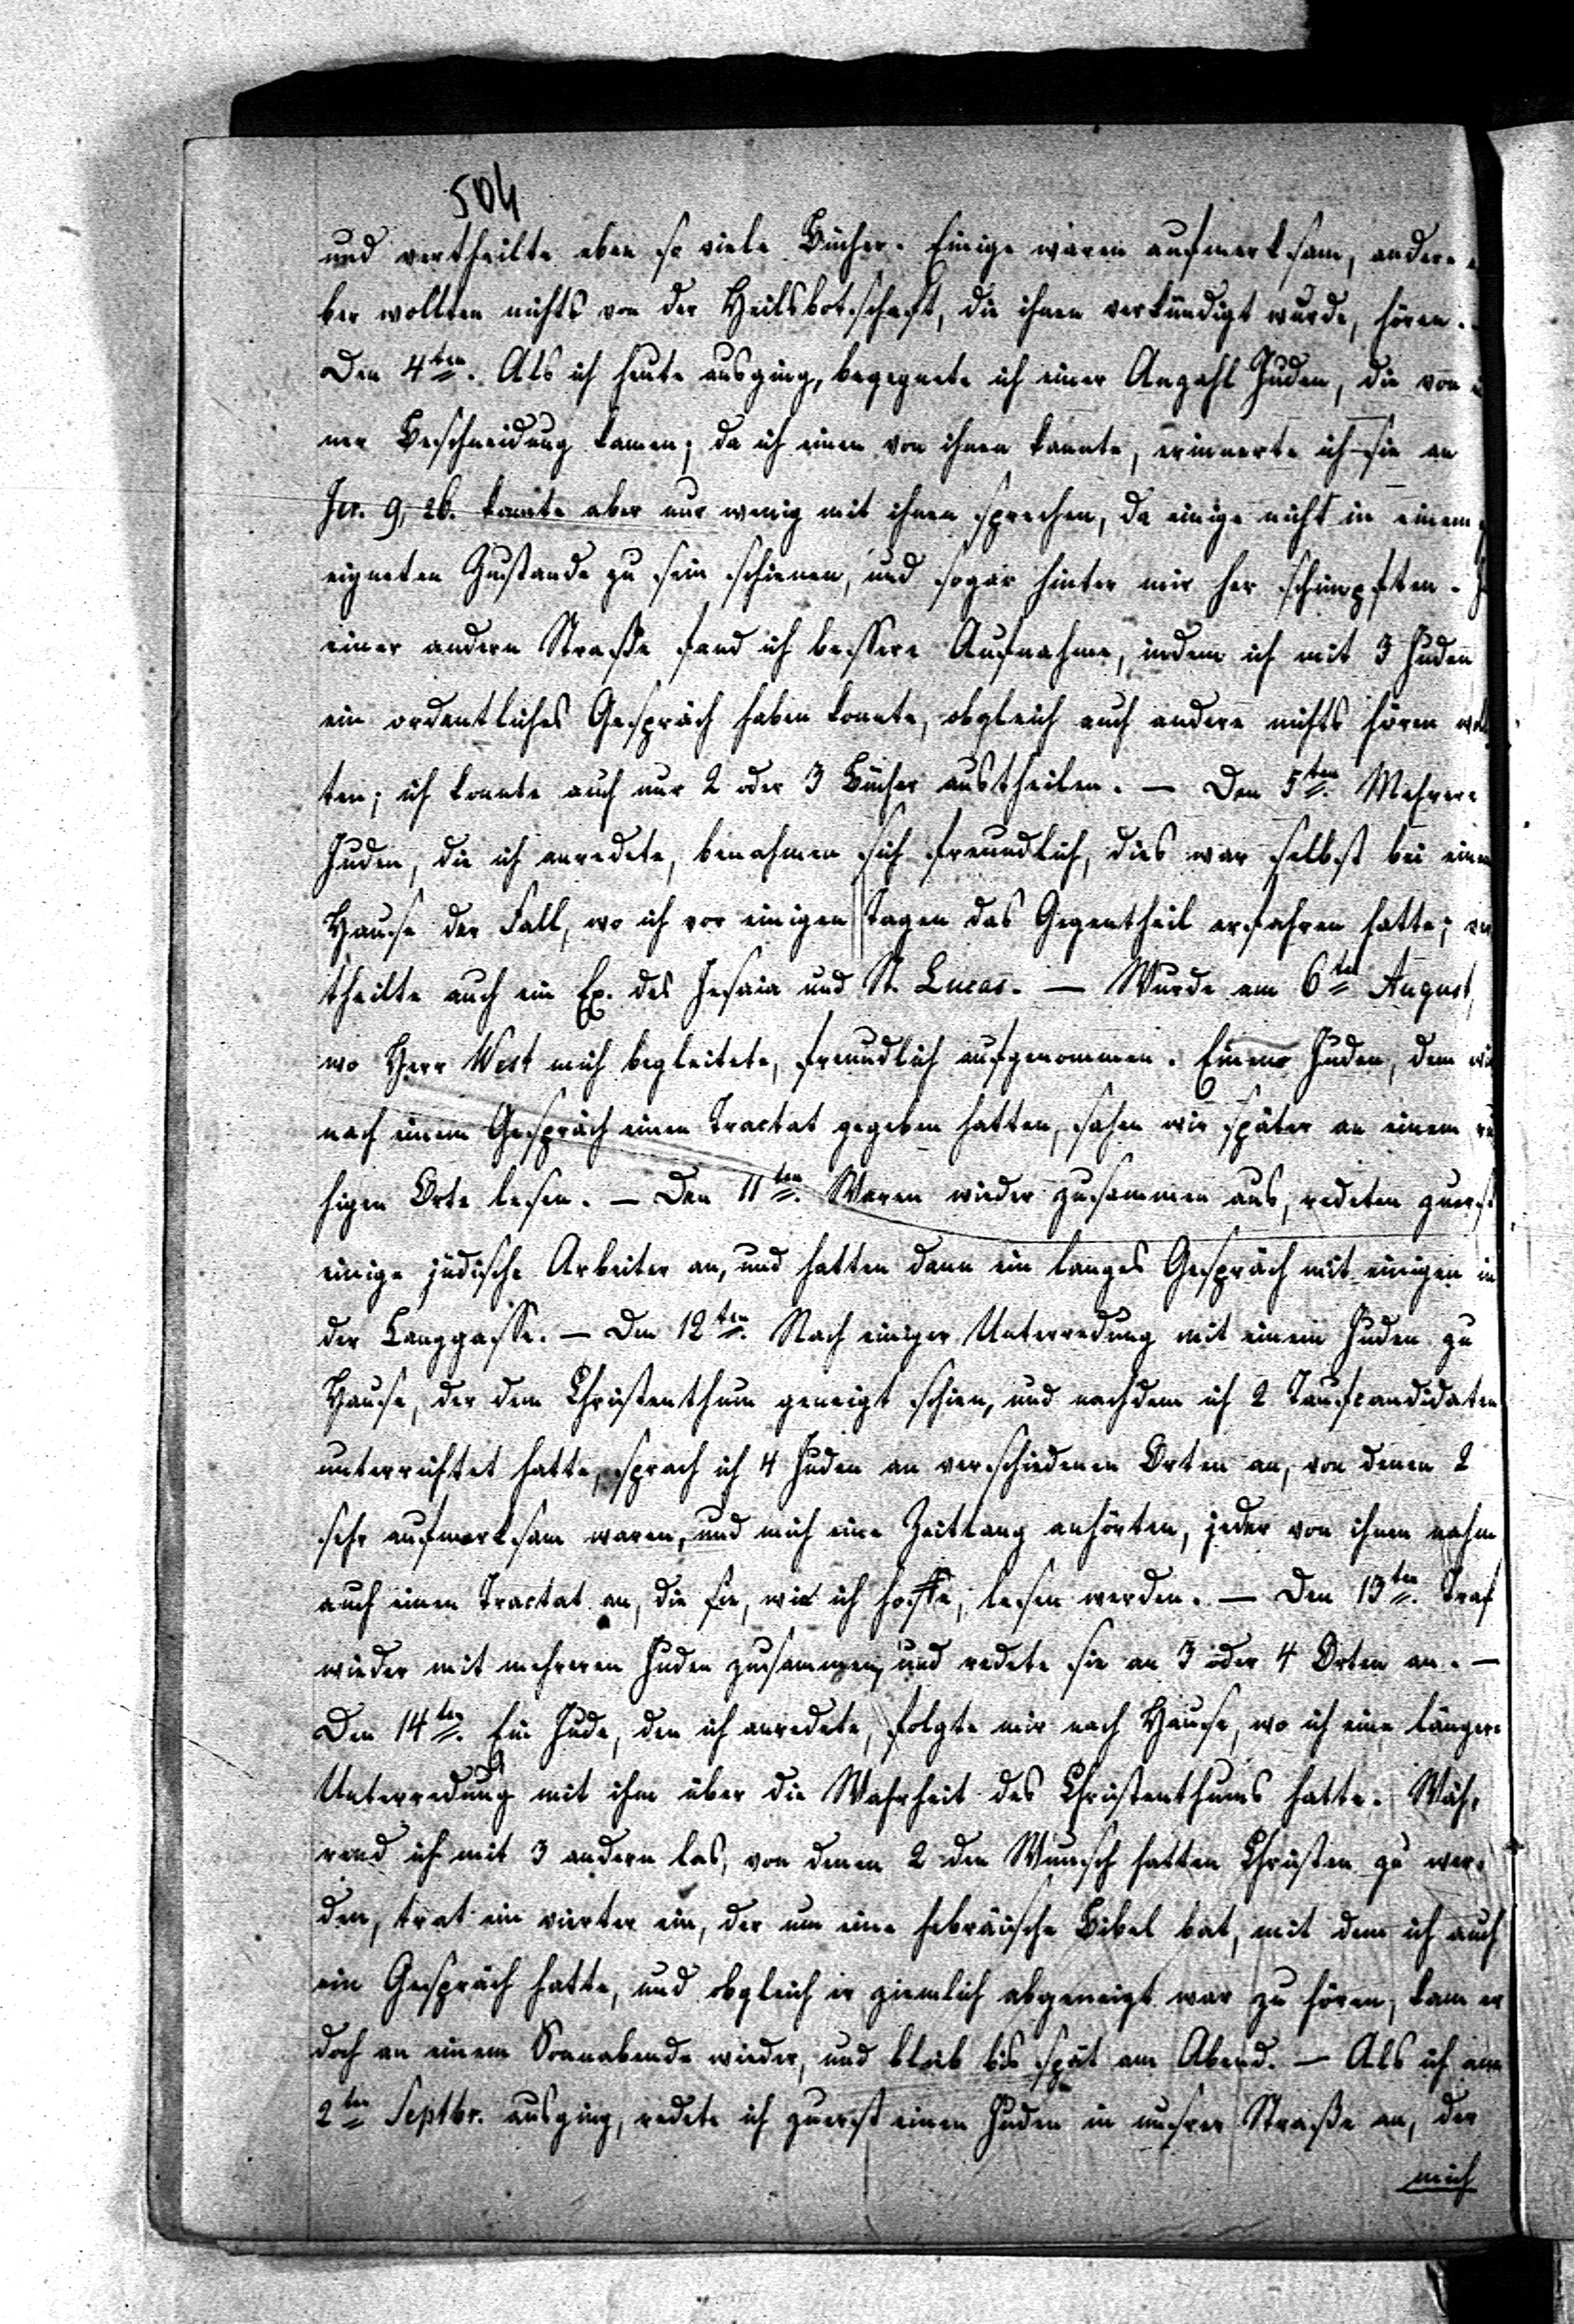 504
und vertheilte eben so viele Bücher. Einige waren aufmerksam, andere a
ber wollten nichts von der Heilsbotschaft, die ihnen verkündigt wurde, hören.
Den 4ten. Als ich heute ausging, begegnete ich einer Anzahl Juden, die von ei
ner Beschneidung kamen; da ich einen von ihnen kannte, erinnerte ich sie an
Jer. 9, 26. konnte aber nur wenig mit ihnen sprechen, da einige nicht in einem ge
eigneten Zustande zu sein schienen, und sogar hinter mir her schimpften. In
einer andern Straße fand ich bessere Aufnahme, indem ich mit 3 Juden
ein ordentliches Gespräch haben konnte, obgleich auch andere nichts hören woll
ten; ich konnte auch nur 2 oder 3 Bücher austheilen. — Den 5ten. Mehrere
Juden, die ich anredete, benahmen sich freundlich, dies war selbst bei einem
Hause der Fall, wo ich vor einigen Tagen das Gegentheil erfahren hatte; ver
theilte auch ein Ex. des Jesaia und St. Lucas. — Wurde am 6ten August,
wo Herr West mich begleitete, freundlich aufgenommen. Einen Juden, dem wir
nach einem Gespräch einen Tractat gegeben hatten, sahen wir später an einem ru
higen Orte lesen. — Den 11ten. Waren wieder zusammen aus, redeten zuerst
einige jüdische Arbeiter an, und hatten dann ein langes Gespräch mit einigen in
der Langgasse. — Den 12ten. Nach einiger Unterredung mit einem Juden zu
Hause, der dem Christenthum geneigt schien, und nachdem ich 2 Taufcandidaten
unterrichtet hatte, sprach ich 4 Juden an verschiedenen Orten an, von denen 2
sehr aufmerksam waren, und mich eine Zeitlang anhörten, jeder von ihnen nahm
auch einen Tractat an, die sie, wie ich hoffe, lesen werden. — Den 13ten. Traf
wieder mit mehreren Juden zusammen, und redete sie an 3 oder 4 Orten an. —
Den 14ten. Ein Jude, den ich anredete, folgte mir nach Hause, wo ich eine längere
Unterredung mit ihm über die Wahrheit des Christenthums hatte. Wäh-
rend ich mit 3 andern las, von denen 2 den Wunsch hatten Christen zu wer-
den, trat ein vierter ein, der um eine hebräische Bibel bat, mit dem ich auch
ein Gespräch hatte, und obgleich er ziemlich abgeneigt war zu hören, kam er
doch an einem Sonnabende wieder, und blieb bis spät am Abend. — Als ich am
2ten Septbr. ausging, redete ich zuerst einen Juden in unsrer Straße an, der
mich